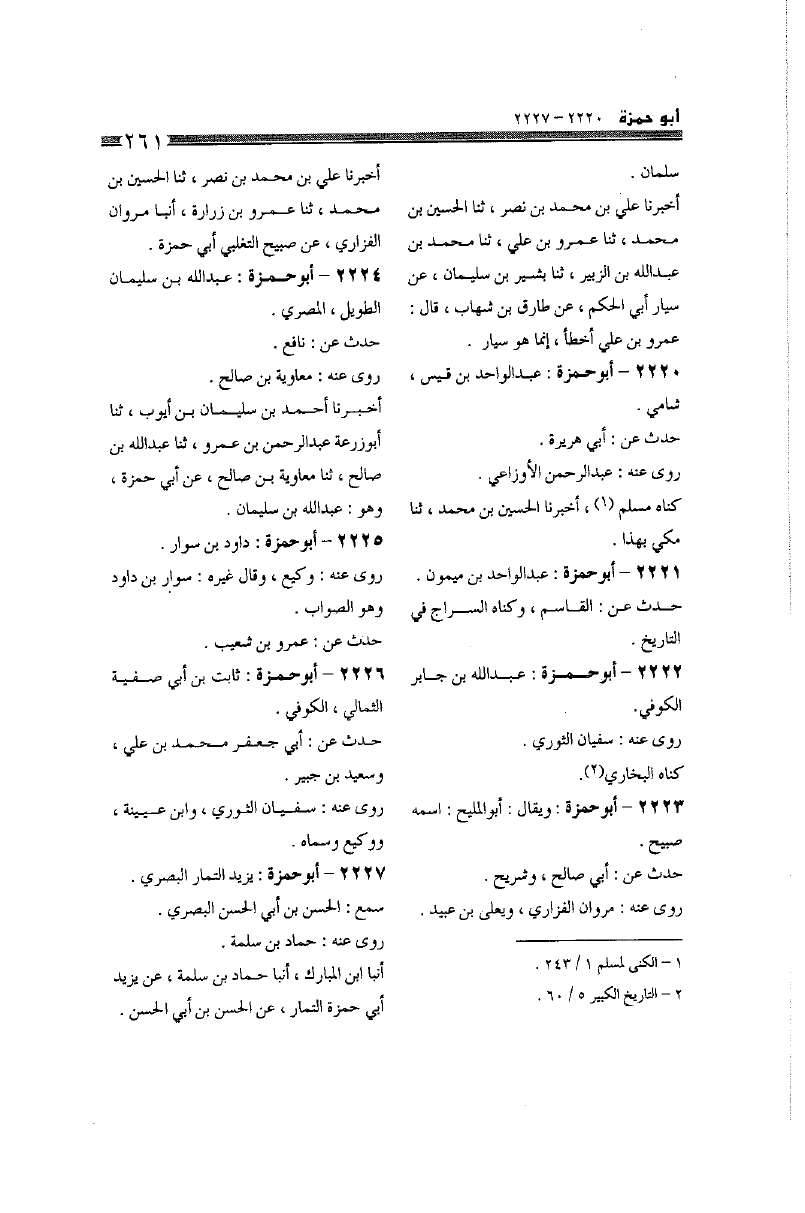 أبو حمزة ٢٢٢٠ - ٢٢٢٧
٢٦١
سلمان .
أخبرنا علي بن محمد بن نصر ، ثنا الحسين بن
محمد ، ثنا عمرو بن علي ، ثنا محمد بن
عبدالله بن الزبير ، ثنا بشير بن سليمان ، عن
سيار أبي الحكم ، عن طارق بن شهاب ، قال :
عمرو بن علي أخطأ ، إنما هو سيار .
٢٢٢٠ - أبوحمزة : عبدالواحد بن قيس ،
شامي .
حدث عن : أبي هريرة .
روى عنه : عبدالرحمن الأوزاعي .
كناه مسلم (١) ، أخبرنا الحسين بن محمد ، ثنا
مكي بهذا .
٢٢٢١ - أبوحمزة : عبدالواحد بن ميمون .
حدث عن : القاسم ، وكناه السراج في
التاريخ .
٢٢٢٢ - أبوحمزة : عبدالله بن جابر
الكوفي.
روى عنه : سفيان الثوري .
كناه البخاري(٢).
٢٢٢٣ - أبوحمزة : ويقال : أبوالمليح : اسمه
صبيح .
حدث عن : أبي صالح ، وشريح .
روى عنه : مروان الفزاري ، ويعلى بن عبيد .
١ - الكنى لمسلم ١ / ٢٤٣ .
٢ - التاريخ الكبير ٥ / ٦٠ .
أخبرنا علي بن محمد بن نصر ، ثنا الحسين بن
محمد ، ثنا عمرو بن زرارة ، أنبا مروان
الفزاري ، عن صبيح التغلبي أبي حمزة .
٢٢٢٤ - أبوحمزة : عبدالله بن سليمان
الطويل ، المصري .
حدث عن : نافع .
روى عنه : معاوية بن صالح .
أخبرنا أحمد بن سليمان بن أيوب ، ثنا
أبوزرعة عبدالرحمن بن عمرو ، ثنا عبدالله بن
صالح ، ثنا معاوية بن صالح ، عن أبي حمزة ،
وهو : عبدالله بن سليمان .
٢٢٢٥ - أبوحمزة : داود بن سوار .
روى عنه : وكيع ، وقال غيره : سوار بن داود
وهو الصواب .
حدث عن : عمرو بن شعيب .
٢٢٢٦ - أبوحمزة : ثابت بن أبي صفية
الثمالي ، الكوفي .
حدث عن : أبي جعفر محمد بن علي ،
وسعيد بن جبير .
روى عنه : سفيان الثوري ، وابن عيينة ،
ووكيع وسماه .
٢٢٢٧ - أبوحمزة : يزيد التمار البصري .
سمع : الحسن بن أبي الحسن البصري .
روى عنه : حماد بن سلمة .
أنبا ابن المبارك ، أنبا حماد بن سلمة ، عن يزيد
أبي حمزة التمار ، عن الحسن بن أبي الحسن .